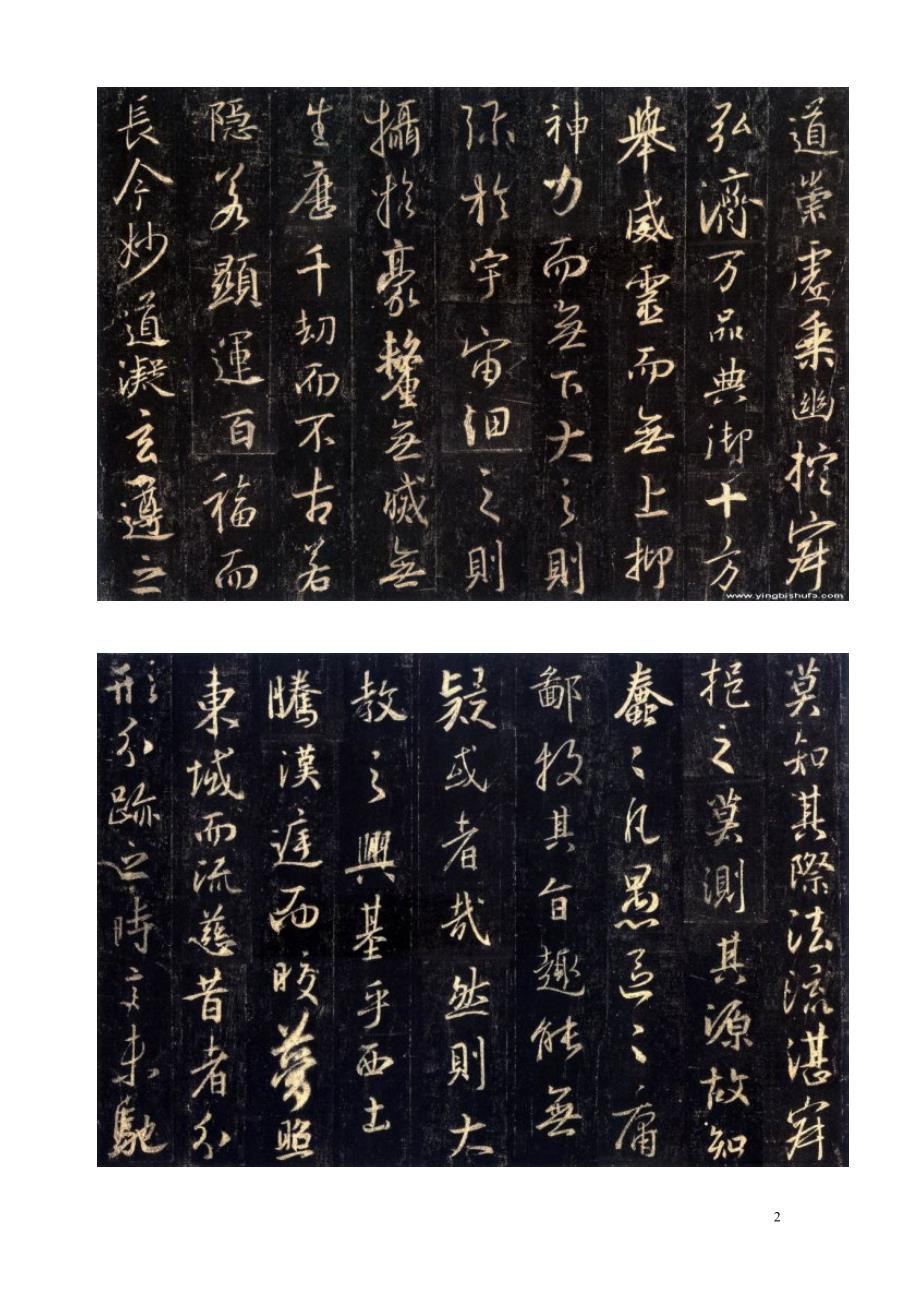 道崇虛乘幽控寂
弘濟万品典御十方
舉威靈而無上抑
神力而無下大之則
弥於宇宙細之則
攝於豪釐無滅無
生歷千劫而不古若
隱若顯運百福而
長今妙道凝玄遵之
www.yingbishufa.com
莫知其際法流湛寂
挹之莫測其源故知
蠢蠢凡愚區區庸
鄙投其旨趣能無
疑或者哉然則大
教之興基乎西土
騰漢庭而皎夢照
東域而流慈昔者分
形分跡之時言未馳
2